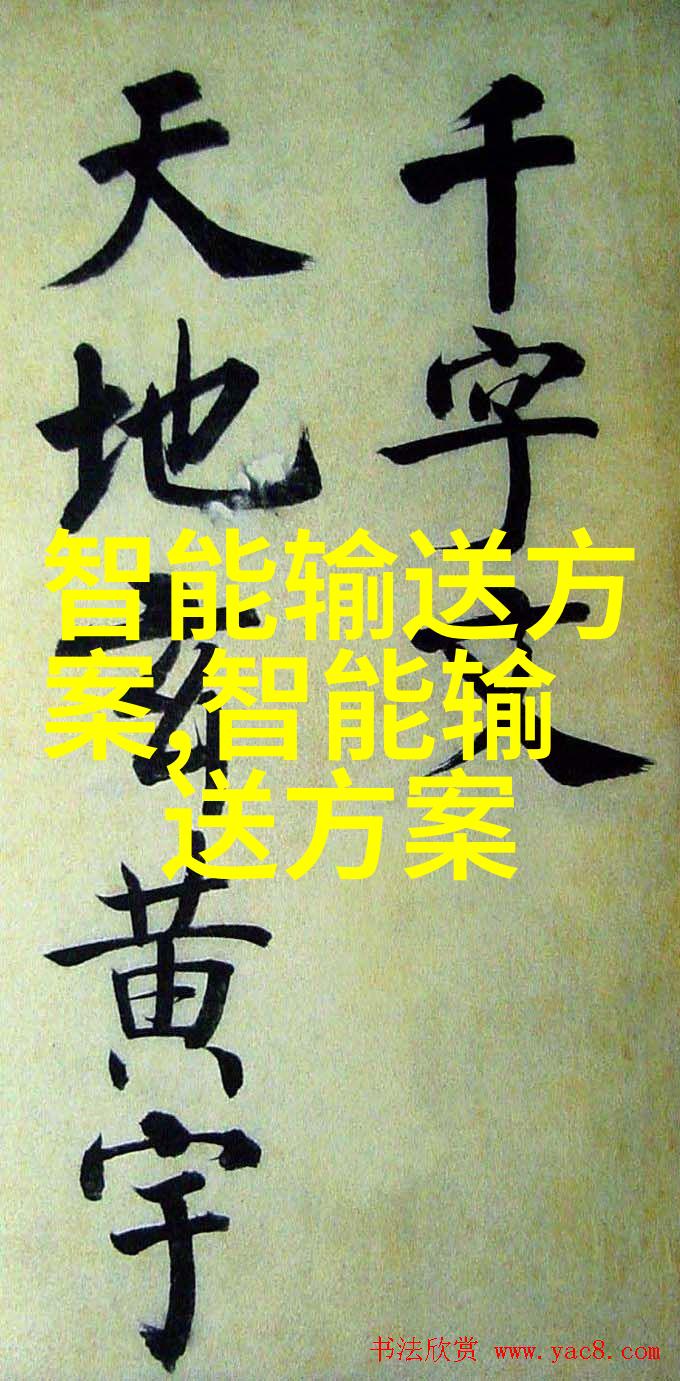 千字文
天地玄黄宇
智能输送方
案,智能输
送方案
书法欣赏 www.yac8.com